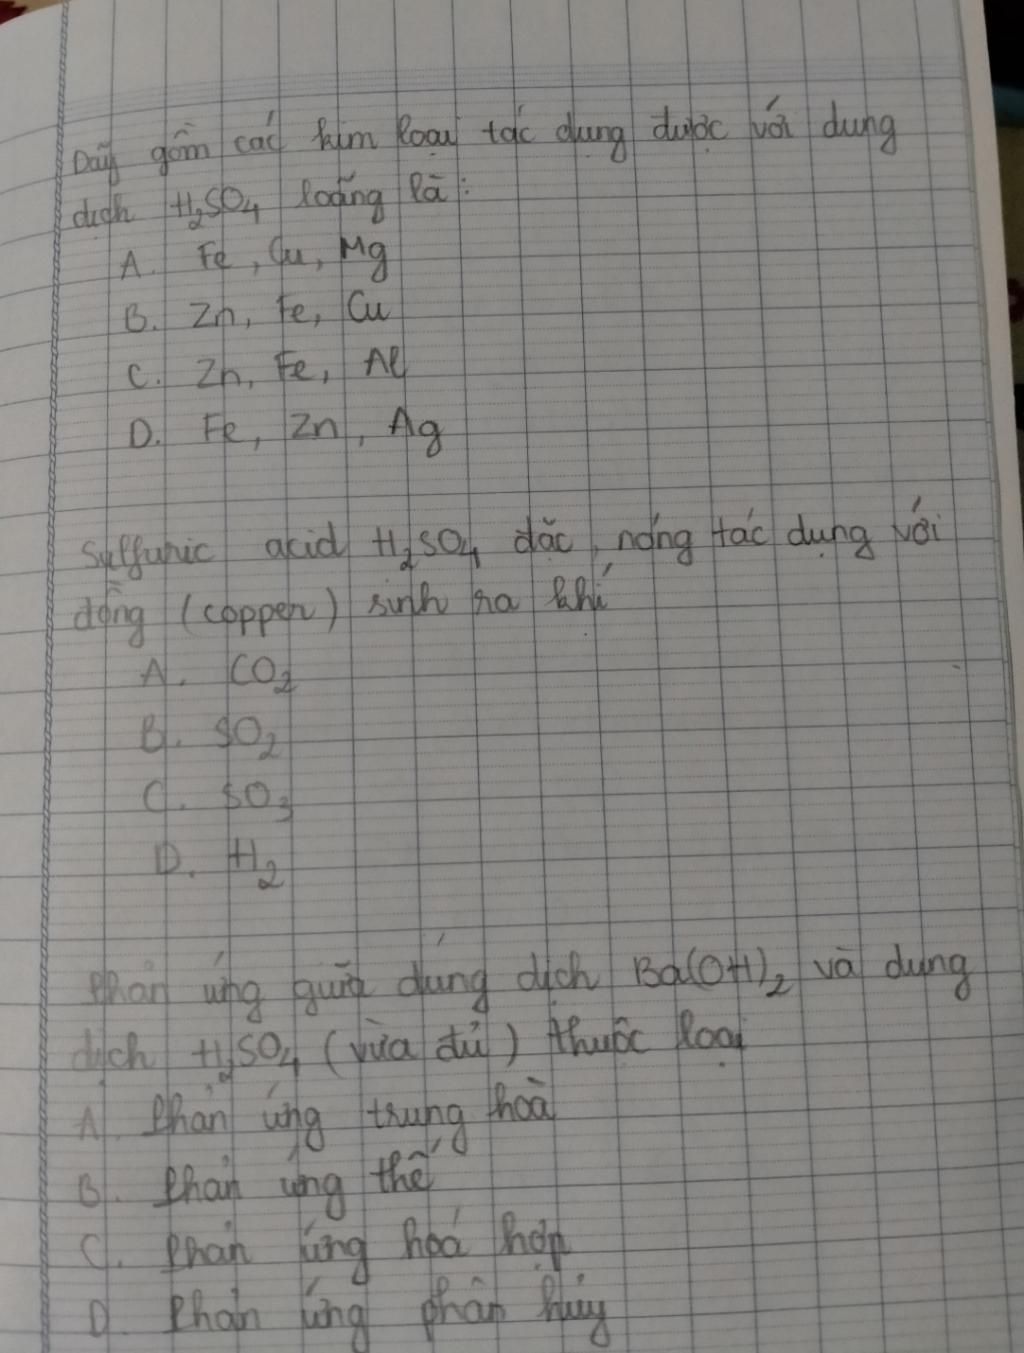 Dãy gồm các kim loại tác dụng được với dung
dịch H₂SO₄ loãng là:
A. Fe, Cu, Mg
B. Zn, Fe, Cu
C. Zn, Fe, Al
D. Fe, Zn, Ag
Sulfuric acid H₂SO₄ đặc, nóng tác dụng với
đồng (copper) sinh ra khí
A. CO₂
B. SO₂
C. SO₃
D. H₂
Phản ứng giữa dung dịch Ba(OH)₂ và dung
dịch H₂SO₄ (vừa đủ) thuộc loại
A. Phản ứng trung hoà
B. Phản ứng thế
C. Phản ứng hoá hợp
D. Phản ứng phân hủy